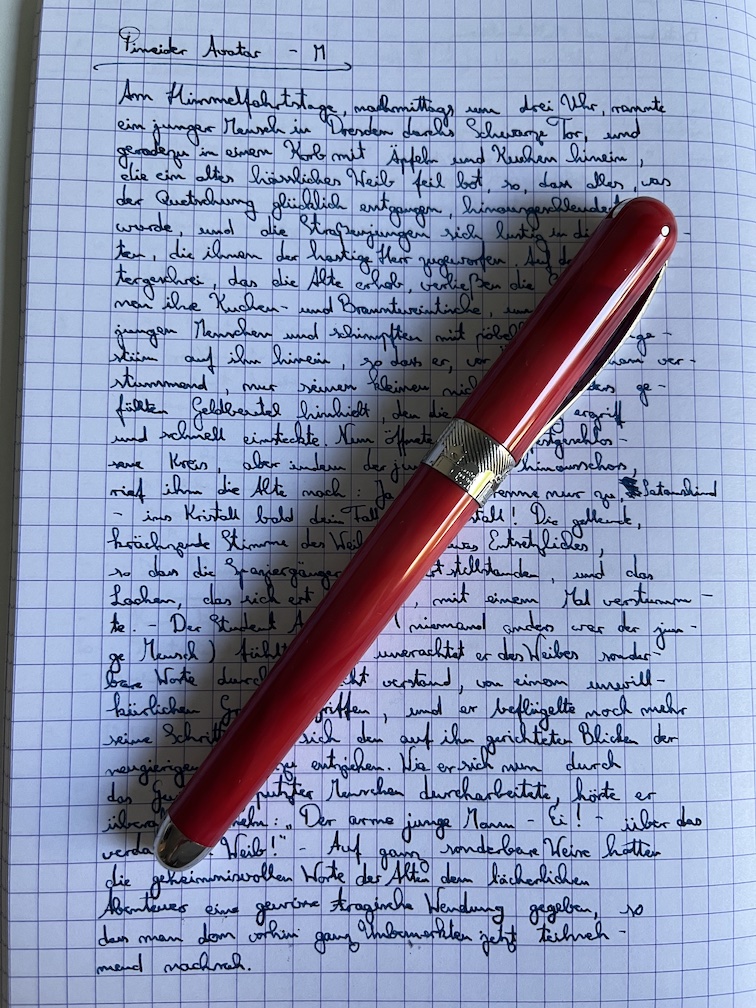 Pineider Avatar - M
Am Himmelfahrtstage, nachmittags um drei Uhr, rannte
ein junger Mensch in Dresden durchs Schwarze Tor, und
geradezu in einen Korb mit Äpfeln und Kuchen hinein,
die ein altes hässliches Weib feil bot, so, dass alles, was
der Quetschung glücklich entgangen, hinausgeschleudert
wurde, und die Straßenjungen sich lustig in die
ten, die ihnen der hastige Herr zugeworfen Auf de
tergeschrei, das die Alte erhob, verließen die
men ihre Kuchen- und Branntweintische, um
jungen Menschen und schimpften mit pöbel ge-
stüm auf ihn hinein, so dass er, vor ver-
stummend, nur seinen kleinen nich ders ge-
füllten Geldbeutel hinhielt, den die ergriff
und schnell einsteckte. Nun öffnete estgeschlos-
sene Kreis, aber indem der jun hinausschoss,
rief ihm die Alte nach: Ja renne nur zu, Satanskind
- ins Kristall bald dein Fall stall! Die gellende,
krächzende Stimme des Weib was Entsetzliches,
so dass die Spaziergänger t stillstanden, und das
Lachen, das sich erst , mit einem Mal verstumm-
te. - Der Student A ( niemand anders war der jun-
ge Mensch) fühlt unerachtet er des Weibes sonder-
bare Worte durch cht verstand, von einem unwill-
kürlichen Gr griffen, und er beflügelte noch mehr
seine Schritt sich den auf ihn gerichteten Blicken der
neugierigen zu entziehen. Wie er sich nun durch
das Ge putzter Menschen durcharbeitete, hörte er
überal meln: „Der arme junge Mann - Ei! - über das
verda Weib!" - Auf ganz sonderbare Weise hatten
die geheimnisvollen Worte der Alten dem lächerlichen
Abenteuer eine gewisse tragische Wendung gegeben, so
dass man dem vorhin ganz Unbemerkten jetzt teilneh-
mend nachsah.